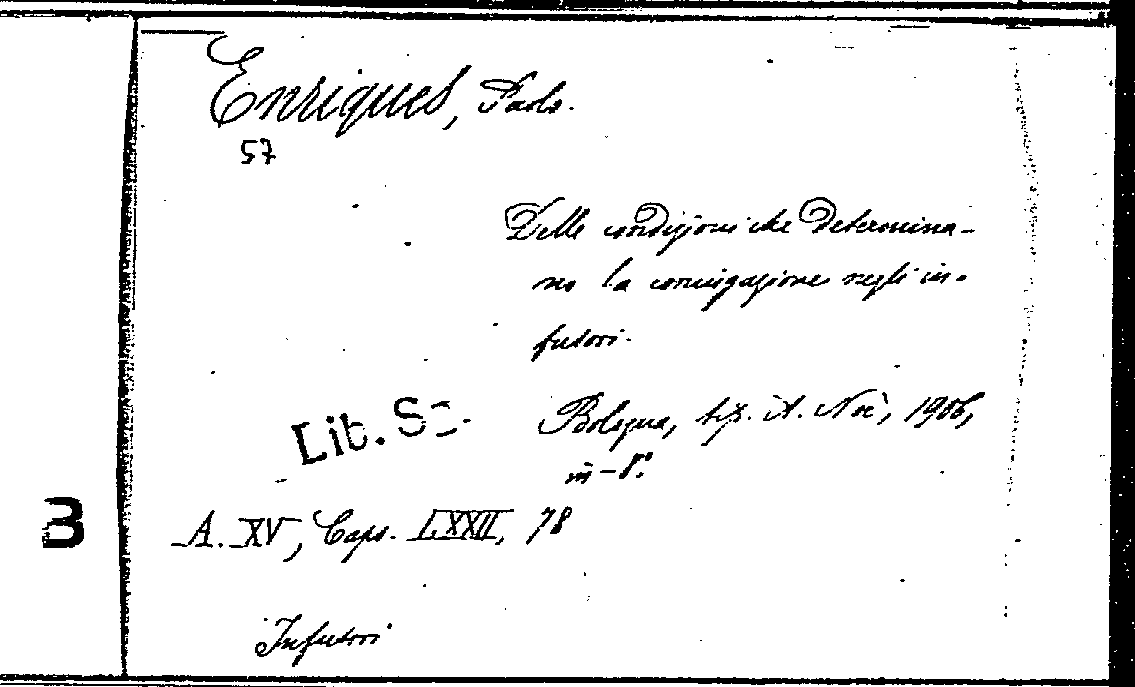 Enriques, Paolo.
57
Delle condizioni che determina-
no la coniugazione negli in-
fusori.
Bologna, tip. A. Noè, 1906,
in-8°.
Lib. Sc.
3
A. XV, Caps. LXXII, 78
Infusori